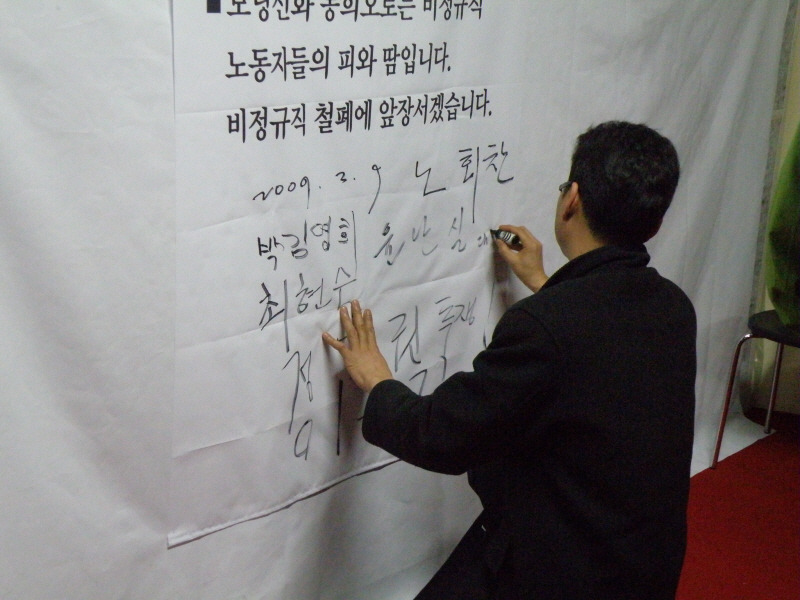 ■ 모닝신화 동희오토는 비정규직
노동자들의 피와 땀입니다.
비정규직 철폐에 앞장서겠습니다.
2009. 2. 9 노회찬
박김영희 윤난실
최현숙
권 투쟁